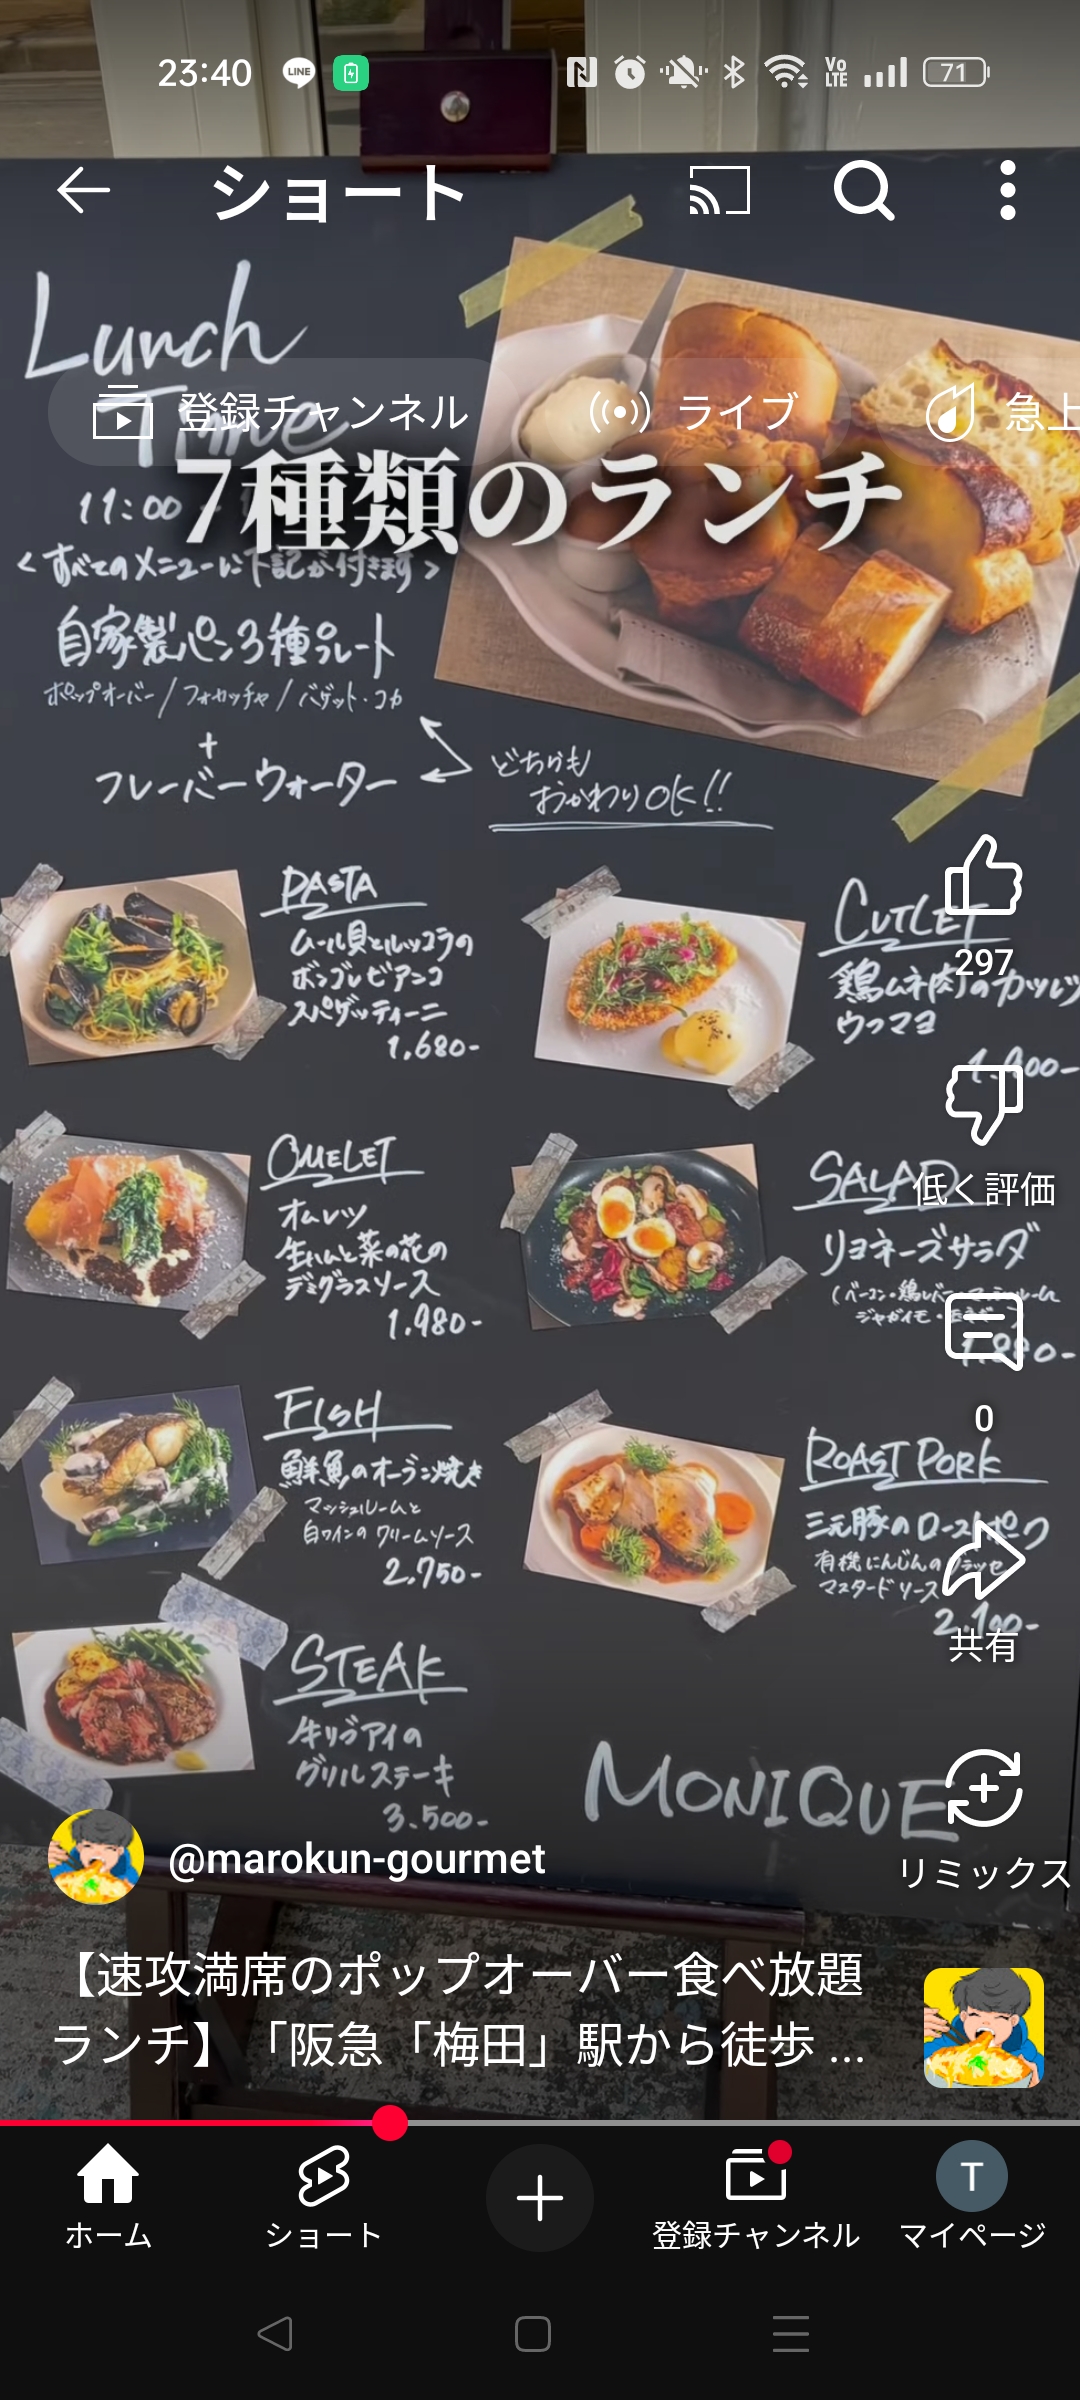 23:40
LINE
Vo LTE
71
ショート
Lunch
Time
登録チャンネル
ライブ
急上
7種類のランチ
11:00
<すべてのメニューに下記が付きます>
自家製パン3種プレート
ポップオーバー/フォカッチャ/バゲット・コカ
+
フレーバーウォーター
どちらも
おかわりOK!!
PASTA
ムール貝とルッコラの
ボンゴレビアンコ
スパゲッティーニ
1,680-
CUTLET
鶏ムネ肉のカツレツ
ウフマヨ
OMELET
オムレツ
生ハムと菜の花の
デミグラスソース
1.980-
SALAD
リヨネーズサラダ
FISH
鮮魚のオーブン焼き
マッシュルームと
白ワインのクリームソース
2,750-
ROAST PORK
三元豚のローストポーク
有機にんじんのグラッセ
マスタードソース
STEAK
牛リブアイの
グリルステーキ
3.500-
MONIQUE
297
低く評価
0
共有
リミックス
@marokun-gourmet
【速攻満席のポップオーバー食べ放題
ランチ】「阪急「梅田」駅から徒歩 ...
ホーム
ショート
登録チャンネル
T
マイページ